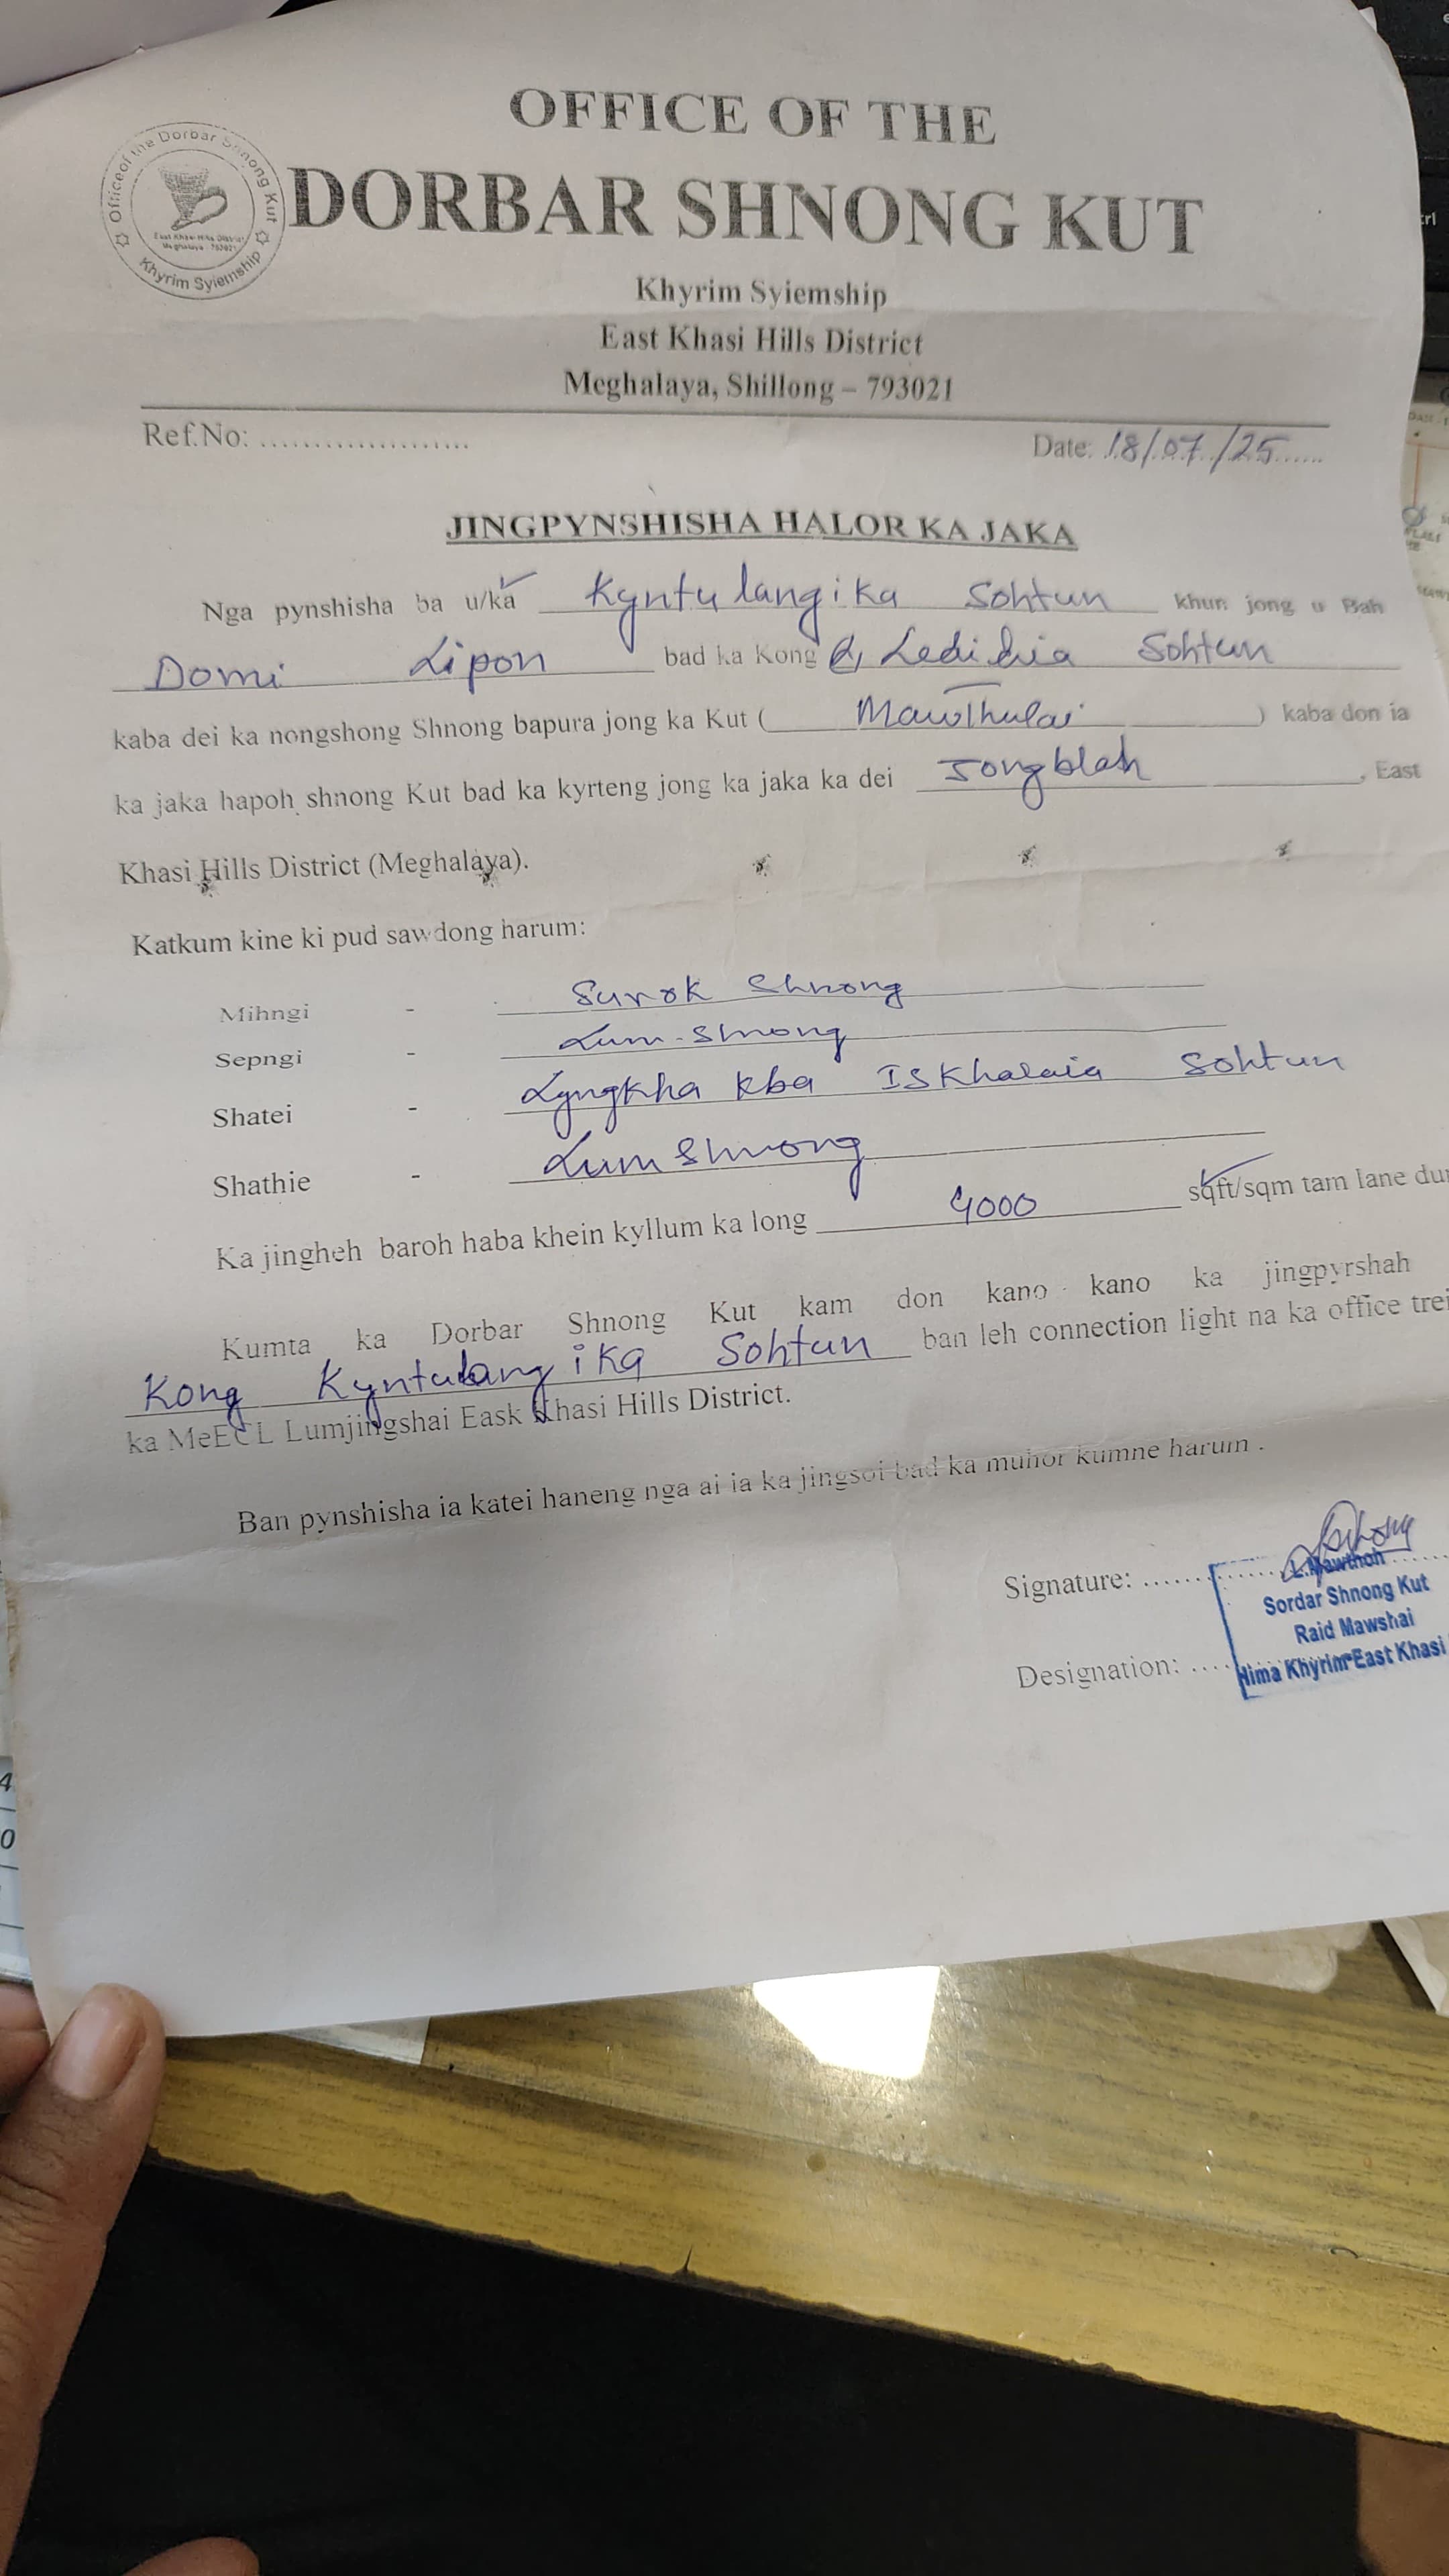 OFFICE OF THE
DORBAR SHNONG KUT
Office of the Dorbar Shnong Kut
East Khasi Hills District
Meghalaya - 793021
Khyrim Syiemship
Khyrim Syiemship
East Khasi Hills District
Meghalaya, Shillong – 793021
Ref.No: ....................
Date: 18/07/25......
JINGPYNSHISHA HALOR KA JAKA
Nga pynshisha ba u/ka Kyntulangika Sohtun khun jong u Bah
Domi Lipon bad ka Kong Ledidia Sohtun
kaba dei ka nongshong Shnong bapura jong ka Kut ( Mawthulai ) kaba don ia
ka jaka hapoh shnong Kut bad ka kyrteng jong ka jaka ka dei Jongblah, East
Khasi Hills District (Meghalaya).
Katkum kine ki pud sawdong harum:
Mihngi - Surok Shnong
Sepngi - Lum-Shnong
Shatei - Lyngkha kba Iskhalaia Sohtun
Shathie - Lum Shnong
Ka jingheh baroh haba khein kyllum ka long 4000 sqft/sqm tam lane dun
Kumta ka Dorbar Shnong Kut kam don kano kano ka jingpyrshah
Kong Kyntulangika Sohtun ban leh connection light na ka office trei
ka MeECL Lumjingshai Eask Khasi Hills District.
Ban pynshisha ia katei haneng nga ai ia ka jingsoi bad ka muhor kumne harum .
Signature: ..............
L.Mawthoh
Sordar Shnong Kut
Raid Mawshai
Designation: ....
Hima Khyrim East Khasi